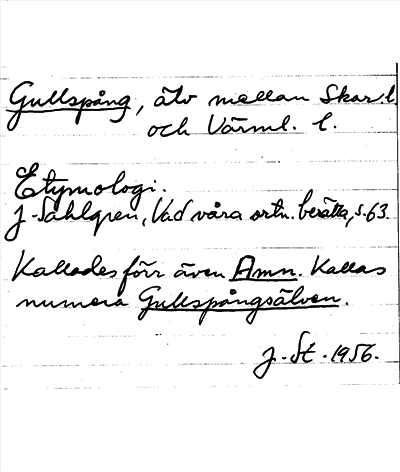 Gullspång, älv mellan Skar. l.
och Värml. l.
Etymologi.
J. Sahlgren, Vad våra ortn. berätta, s. 63.
Kallades förr även Amn. Kallas
numera Gullspångsälven.
J. St. 1956.